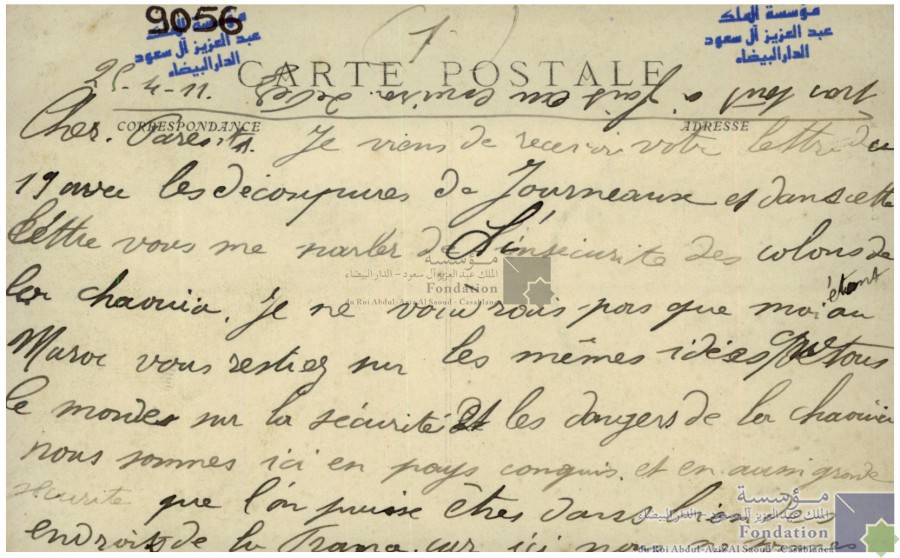 9056
مؤسسة الملك
عبد العزيز آل سعود
الدار البيضاء
(1)
مؤسسة الملك
عبد العزيز آل سعود
الدار البيضاء
25-4-11.
CARTE POSTALE
CORRESPONDANCE
ADRESSE
Cher. Parents. Je viens de recevoir votre lettre du
19 avec les découpures de Journeaux et dans cette
léttre vous me parler de L'insécurité des colons de
la chaouia. Je ne voudrais pas que moi étant au
Maroc vous restiez sur les mêmes idées que tous
le monde sur la sécurité et les dangers de la chaouia
nous sommes ici en pays conquis. et en aussi grande
sécurité que l'on puisse êtres dans bien des
endroits de la France car ici nous
مؤسسة
الملك عبد العزيز آل سعود - الدار البيضاء
Fondation
du Roi Abdul-Aziz Al Saoud - Casablanca
مؤسسة
الملك عبد العزيز آل سعود - الدار البيضاء
Fondation
du Roi Abdul-Aziz Al Saoud - Casablanca